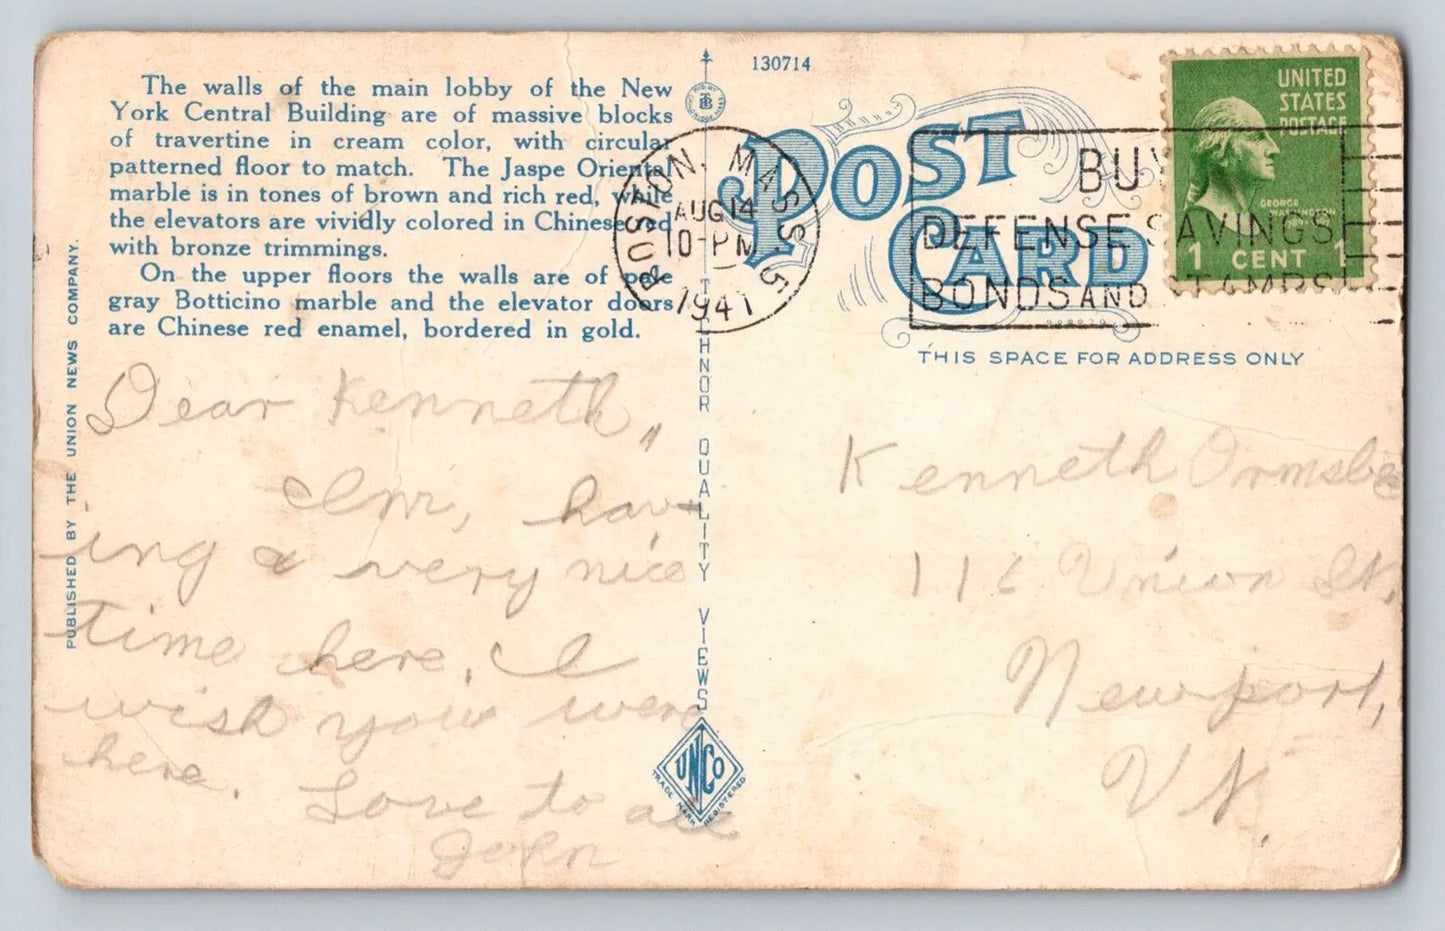 The walls of the main lobby of the New
York Central Building are of massive blocks
of travertine in cream color, with circular
patterned floor to match. The Jaspe Oriental
marble is in tones of brown and rich red, while
the elevators are vividly colored in Chinese red
with bronze trimmings.
On the upper floors the walls are of pale
gray Botticino marble and the elevator doors
are Chinese red enamel, bordered in gold.
PUBLISHED BY THE UNION NEWS COMPANY.
Dear Kenneth,,
I'm, hav-
ing a very nice
time here. I
wish you were
here. Love to all
John
TICHNOR QUALITY VIEWS
UNCO
TRADE MARK REGISTERED
130714
POST
CARD
THIS SPACE FOR ADDRESS ONLY
BOSTON, MASS. 5
AUG 14
10-PM
1941
BUY
DEFENSE SAVINGS
BONDS AND STAMPS
UNITED
STATES
POSTAGE
GEORGE
WASHINGTON
1 CENT 1
Kenneth Ormsbee
116 Union St.
Newport,
Vt.